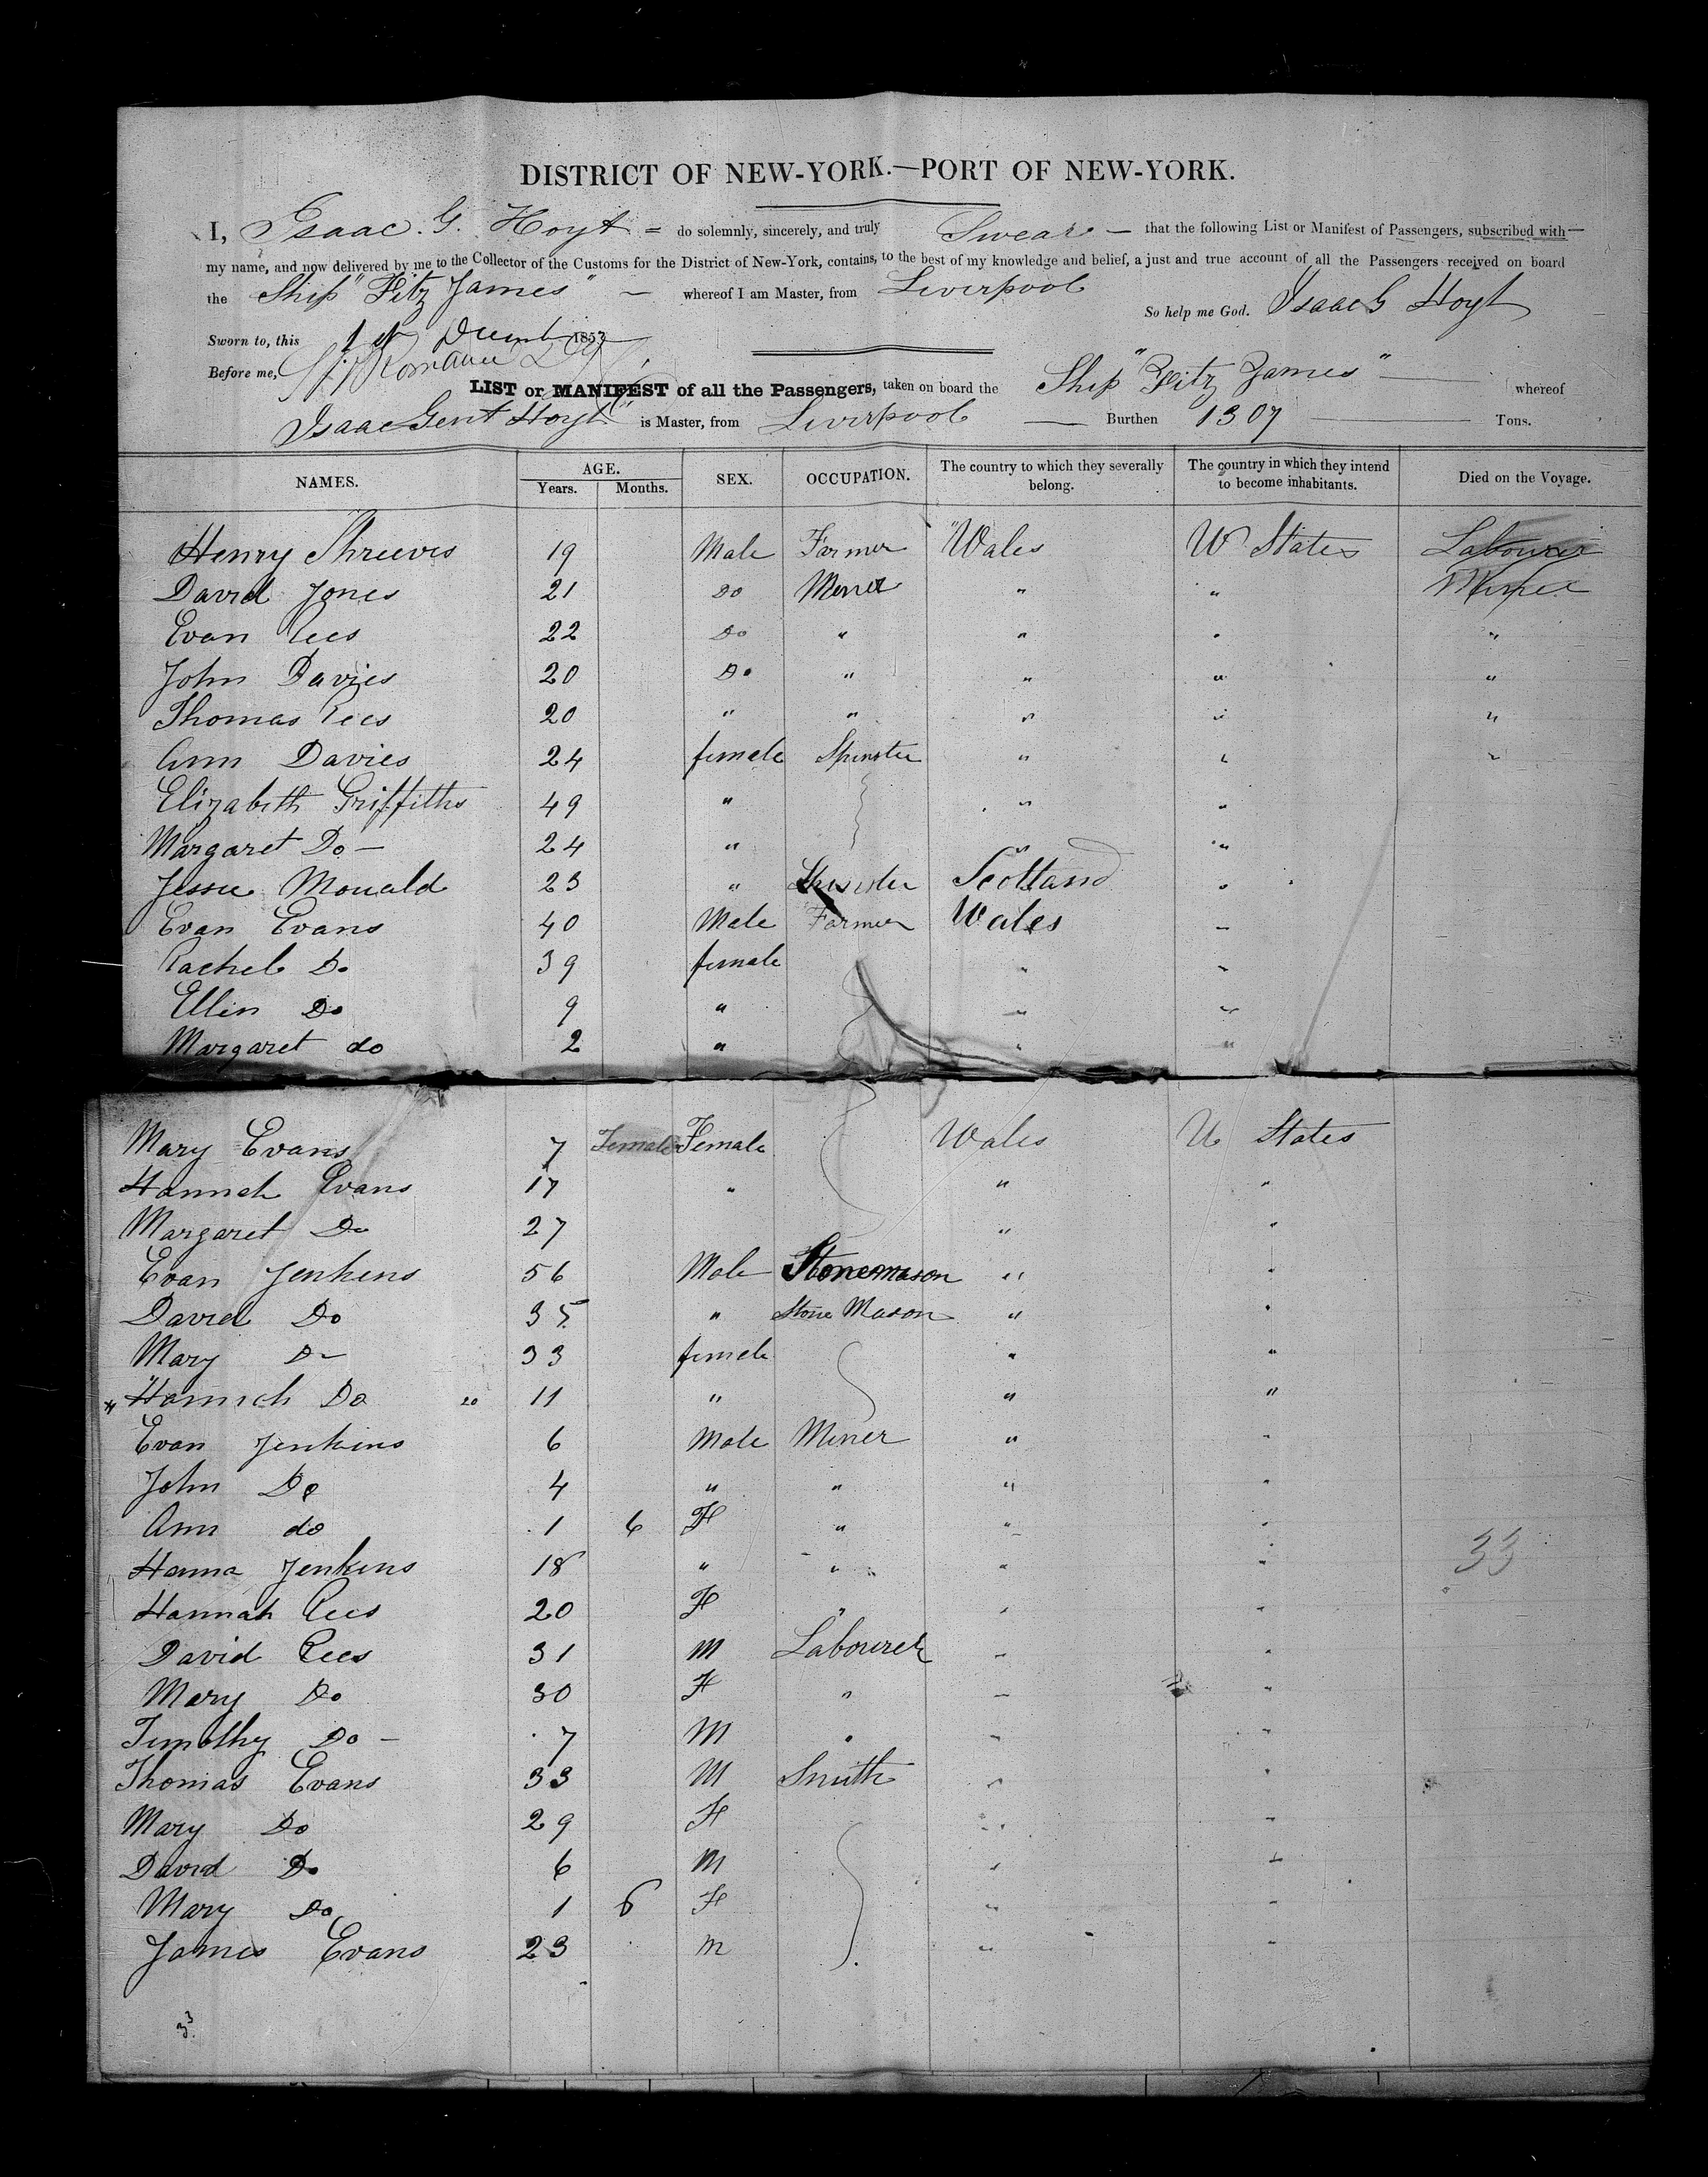 DISTRICT OF NEW-YORK.—PORT OF NEW-YORK.
I, Isaac. G. Hoyt = do solemnly, sincerely, and truly Swear — that the following List or Manifest of Passengers, subscribed with
my name, and now delivered by me to the Collector of the Customs for the District of New-York, contains, to the best of my knowledge and belief, a just and true account of all the Passengers received on board
the Ship "Fitz James" — whereof I am Master, from Liverpool So help me God. Isaac G Hoyt
Sworn to, this 1st 185
Before me,
LIST or MANIFEST of all the Passengers, taken on board the Ship "Fitz James" — whereof
Isaac Gent Hoyt is Master, from Liverpool — Burthen 1307 Tons.
NAMES. AGE. Years. Months. SEX. OCCUPATION. The country to which they severally belong. The country in which they intend to become inhabitants. Died on the Voyage.
Henry Shreeves 19 Male Farmer Wales U States Labourer
David Jones 21 Do Miner " " Miner
Evan Rees 22 Do " " " "
John Davies 20 Do " " " "
Thomas Rees 20 " " " " "
Ann Davies 24 female Spinster " " "
Elizabeth Griffiths 49 " " "
Margaret Do — 24 " " "
Jessie 23 " Spinster Scotland "
Evan Evans 40 Male Farmer Wales "
Rachel Do 39 female " "
Ellin Do 9 " " "
Margaret do 2 " " "
Mary Evans 7 Female Female Wales U States
Hannah Evans 17 " " "
Margaret Do 27 " "
Evan Jenkens 56 Male Stonemason " "
David Do 35 " Stone Mason " "
Mary Do 33 female " "
Hannah Do 11 " " "
Evan Jenkins 6 Male Miner " "
John Do 4 " " " "
Ann do 1 6 F " " "
Hanna Jenkins 18 " " " "
Hannah Rees 20 F " " "
David Rees 31 M Labourer " "
Mary Do 30 F " " "
Timothy Do — 7 M " " "
Thomas Evans 33 M Smith " "
Mary Do 29 F " "
David Do 6 M " "
Mary Do 1 6 F " "
James Evans 23 m " "
33
33